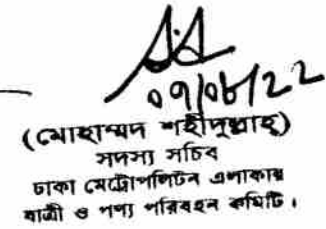 ০৭/০৮/২২
(মোহাম্মদ শহীদুল্লাহ্)
সদস্য সচিব
ঢাকা মেট্রোপলিটন এলাকায়
যাত্রী ও পণ্য পরিবহন কমিটি।